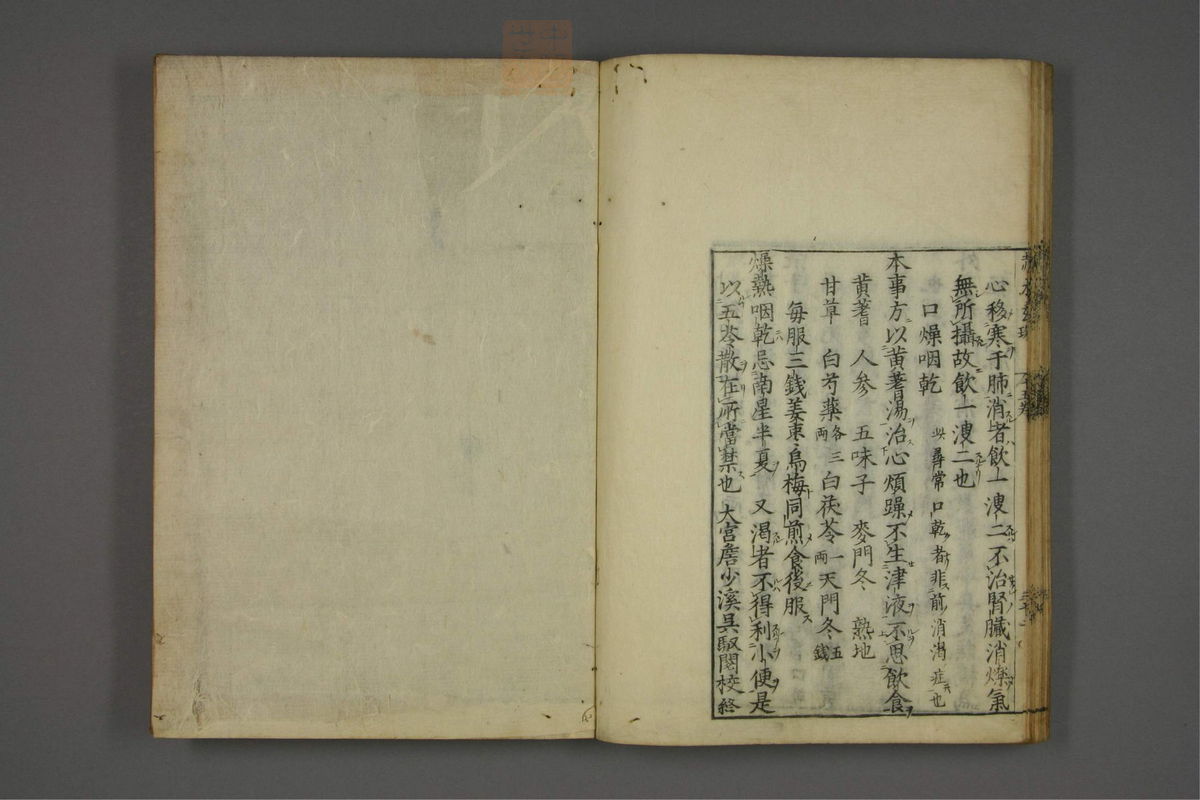 心移寒于肺消者飲一溲二不治腎臟消爍氣
無所攝故飲一溲二也
口燥咽乾 此尋常口乾者非前消渴症也
本事方以黄蓍湯治心煩躁不生津液不思飲食
黄蓍 人參 五味子 麥門冬 熟地
甘草 白芍藥各三兩 白茯苓一兩 天門冬五錢
每服三錢姜棗烏梅同煎食後服
燥熱咽乾忌南星半夏 又渴者不得利小便是
以五苓散在所當禁也 大宫詹少溪具馭閱校終